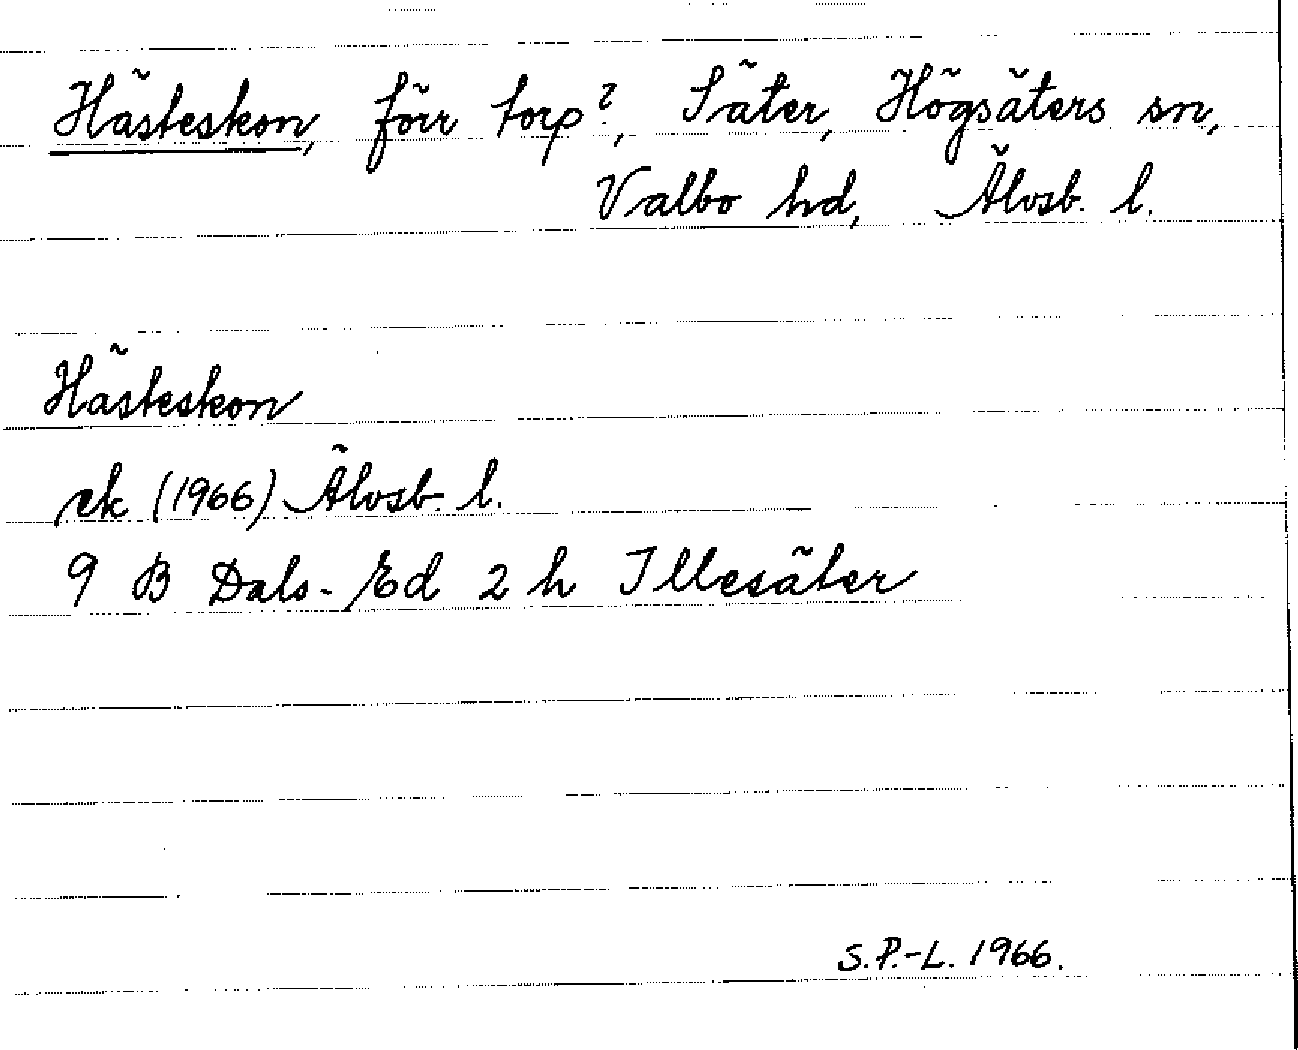 Hästeskon, förr torp?, Säter, Högsäters sn,
Valbo hd, Älvsb. l.
Hästeskon
ek (1966) Älvsb. l.
9 B Dals-Ed 2 h Illesäter
S.P.-L. 1966.